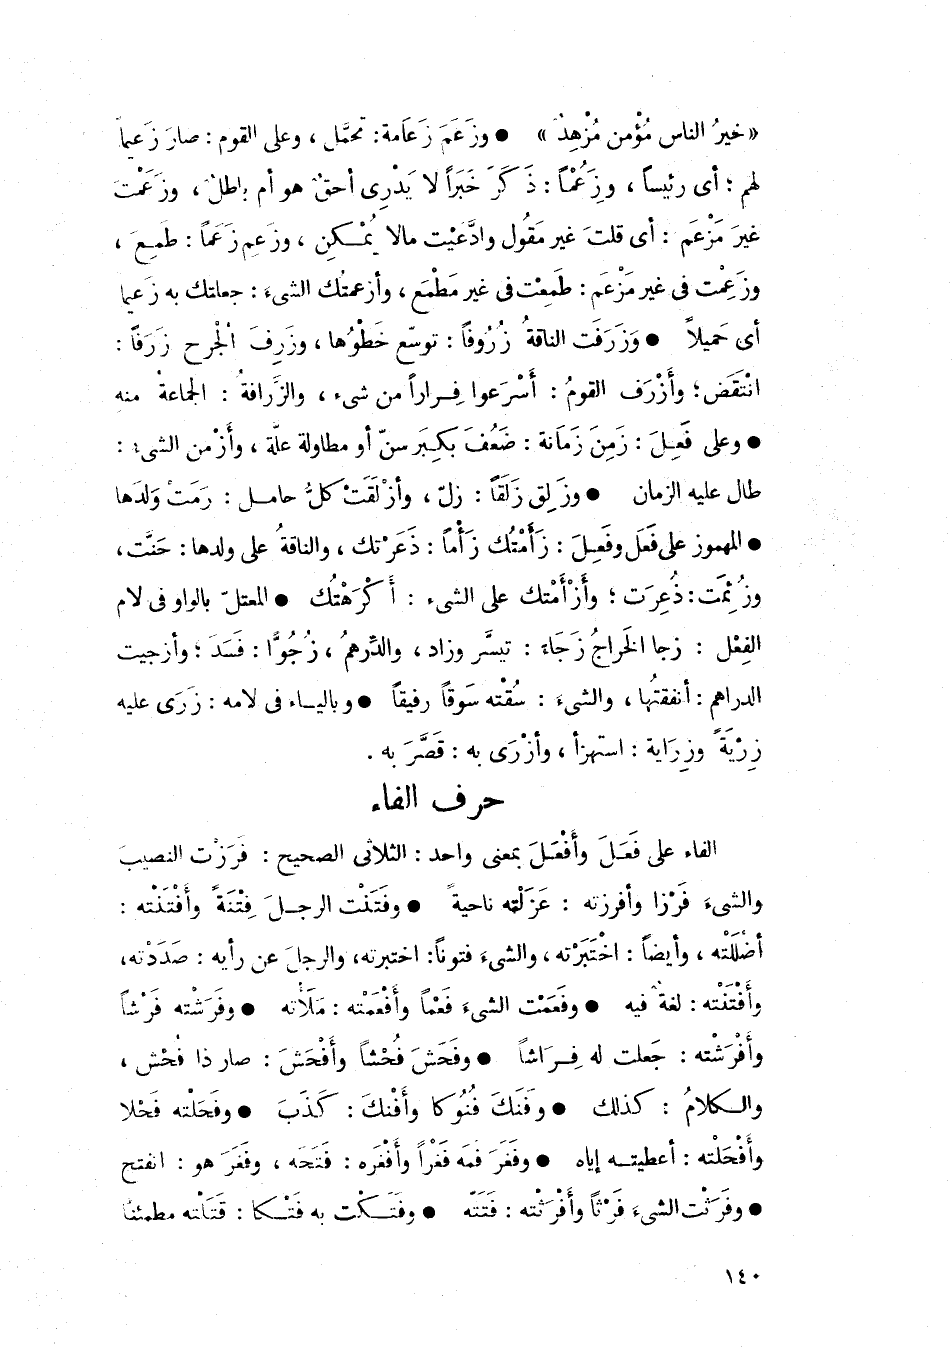 «خيرُ الناس مُؤْمن مُزْهِدٌ» ● وزَعَمَ زَعَامة: تحمَّل ، وعلى القوم : صارَ زَعيماً
لهم ؛ أى رئيساً ، وزَعُمْاً : ذَ كَرَ خَبَراً لا يَدْرِى أحقٌ هو أم باطلٌ ، وزَعَمْتَ
غيرَ مَزْعَم : أى قلتَ غير مَقُول وادَّعَيْت مالا يُمْـكن ، وزَعِم زَعَماً : طَمِـعَ ،
وزَعِمْت فى غير مَزْعَم : طَمِعْت فى غير مَطْمَع ، وأزعمتُك الشىءَ : جعلتك به زَعيما
أى حَميلاً ● وَزَرَفَت الناقةُ زُرُوفاً : توسّع خَطْوُها ، وزَرِفَ الْجُرح زَرَفاً :
انْتَقَض ؛ وأَزْرَف القومُ : أَسْرَعوا فِـراراً من شىء ، والزَّرافةُ : الجماعةْ منه
● وعلى فَعِـلَ : زَمِنَ زَمَانة : ضَعُفَ بكِـبَر سنّ أو مطاولة علّة ، وأَزْمن الشىء :
طال عليه الزمان ● وزَلِق زَلَقاً : زلّ ، وأزْلَقَتْ كلُّ حامـل : رَمَتْ وَلدَها
● المهموز على فَعَل وفَعِـلَ : زَأَمْتُك زَأْماً : ذَعَرْتك ، والناقةُ على ولدها : حَنَّت ،
وزُئِمَت : ذُعِرَت ؛ وأَزْأَمْتك على الشىء : أَكْرَهْتُك ● المعتلّ بالواو فى لام
الفِعْل : زجا الخراجُ زَجَاءَ : تيسَّر وزاد ، والدِّرهمُ ، زُجُوًّا : فَسَدَ ؛ وأزجيت
الدراهم : أنفقتُها ، والشىءَ : سُقْته سَوقاً رفيقاً ● وباليـاء فى لامه : زَرَى عليه
زِرْيَةً وزِرَاية : استهزأ ، وأزْرَى به : قَصَّرَ به .
حرف الفاء
الفاء على فَعَـلَ وأَفْعَـلَ بمعنى واحد : الثلاثى الصحيح : فَرَزْت النصيبَ
والشىءَ فَرْزا وأفرزته : عَزَلْته ناحيةً ● وفَتَنْت الرجـلَ فِتْنَةً وأَفْتَنْته :
أضْلَلْته ، وأيضاً : اخْتَبَرْته ، والشىءَ فتوناً : اختبرته، والرجلَ عن رأيه : صَدَدْته،
وأَفْتَنْته : لغةٌ فيه ● وفَعَمْت الشىءَ فَعْماً وأَفْعَمْته : مَلَأته ● وفَرَشْته فَرْشاً
وأَفْرَشْته : جَعلت له فِـرَاشاً ● وفَحَشَ فُحْشاً وأَفْحَشَ : صار ذا فُحْش ،
والـكلامُ : كذلك ● وفَنَكَ فُنُوكا وأَفْنكَ : كَذَبَ ● وفَحَلْته فَحْلا
وأَفْحَلْته : أعطيتـه إياه ● وفَغَرَ فمَه فَغْراً وأَفْغَره : فَتَحَه ، وفَغَرَ هو : انفتح
● وفَرَثْت الشىءَ فَرْثاً وأَفْرَثْته : فَتَتّه ● وفَتَـكْت به فَتْـكا : قَتَلْته مطمئنًا
١٤٠